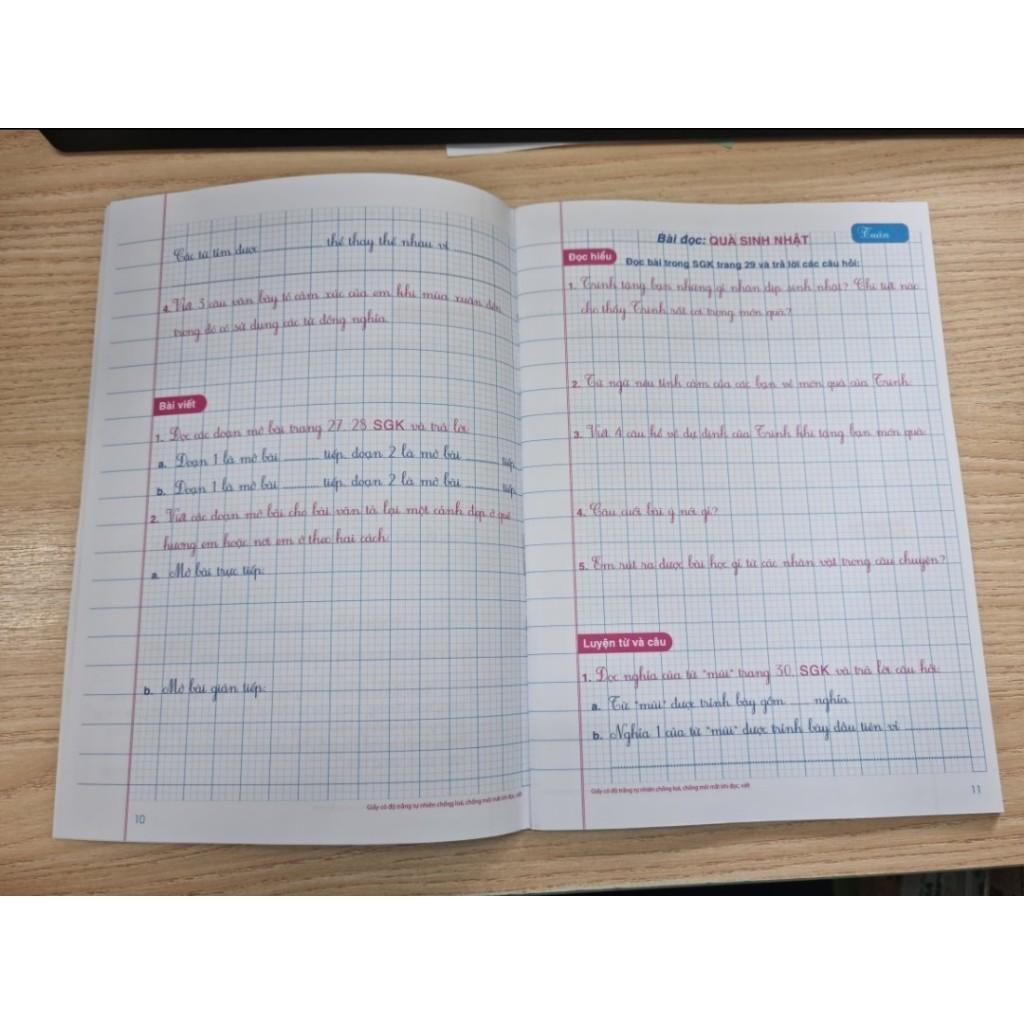 Các từ tìm được ............ thể thay thế nhau vì
4. Viết 3 câu văn bày tỏ cảm xúc của em khi mùa xuân đến,
trong đó có sử dụng các từ đồng nghĩa.
Bài viết
1. Đọc các đoạn mở bài trang 27, 28 SGK và trả lời:
a. Đoạn 1 là mở bài ......... tiếp, đoạn 2 là mở bài ......... tiếp.
b. Đoạn 1 là mở bài ......... tiếp, đoạn 2 là mở bài ......... tiếp.
2. Viết các đoạn mở bài cho bài văn tả lại một cảnh đẹp ở quê
hương em hoặc nơi em ở theo hai cách:
a. Mở bài trực tiếp:
b. Mở bài gián tiếp:
Giấy có độ trắng tự nhiên chống loá, chống mỏi mắt khi đọc, viết
10
Tuần
Bài đọc: QUÀ SINH NHẬT
Đọc hiểu
Đọc bài trong SGK trang 29 và trả lời các câu hỏi:
1. Trinh tặng bạn những gì nhân dịp sinh nhật? Chi tiết nào
cho thấy Trinh rất coi trọng món quà?
2. Từ ngữ nêu tình cảm của các bạn về món quà của Trinh:
3. Viết 4 câu kể về dự định của Trinh khi tặng bạn món quà:
4. Câu cuối bài ý nói gì?
5. Em rút ra được bài học gì từ các nhân vật trong câu chuyện?
Luyện từ và câu
1. Đọc nghĩa của từ "mũi" trang 30, SGK và trả lời câu hỏi:
a. Từ "mũi" được trình bày gồm ...... nghĩa.
b. Nghĩa 1 của từ "mũi" được trình bày đầu tiên vì ............
Giấy có độ trắng tự nhiên chống loá, chống mỏi mắt khi đọc, viết
11